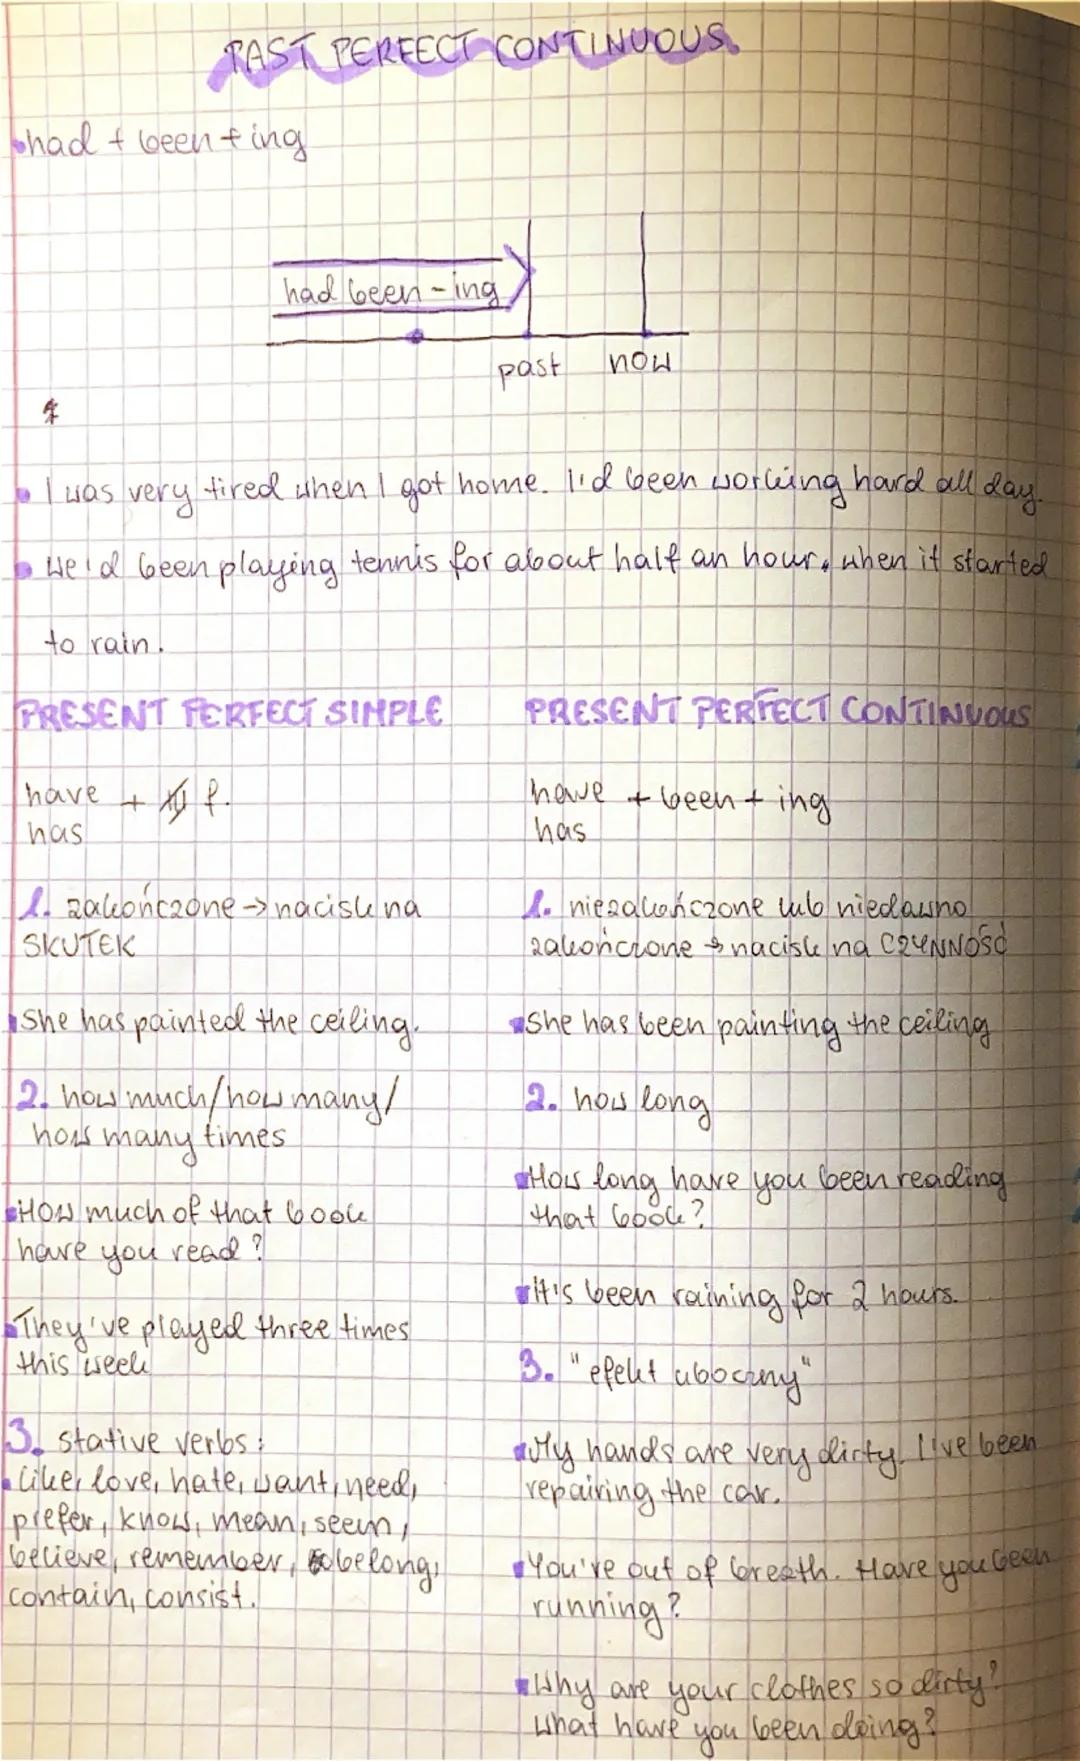 PAST PERFECT CONTINUOUS
had + been + ing
had been - ing
past now
I was very tired when I got home. I'd been working hard all day.
We'd been playing tennis for about half an hour, when it started
to rain.
PRESENT PERFECT SIMPLE
have + f.
has
1. zakończone → nacisk na
SKUTEK
She has painted the ceiling.
2. how much/how many/
how many times
How much of that book
have you read?
They've played three times
this week
3. stative verbs:
like, love, hate, want, need,
prefer, know, mean, seem,
believe, remember, belong,
contain, consist.
PRESENT PERFECT CONTINUOUS
have + been + ing
has
1. niezakończone lub niedawno
zakończone → nacisk na CZYNNOŚĆ
She has been painting the ceiling
2. how long
How long have you been reading
that book?
It's been raining for 2 hours.
3. "efekt uboczny"
My hands are very dirty. I've been
repairing the car.
You're out of breath. Have you been
running?
Why are your clothes so dirty?
What have you been doing?